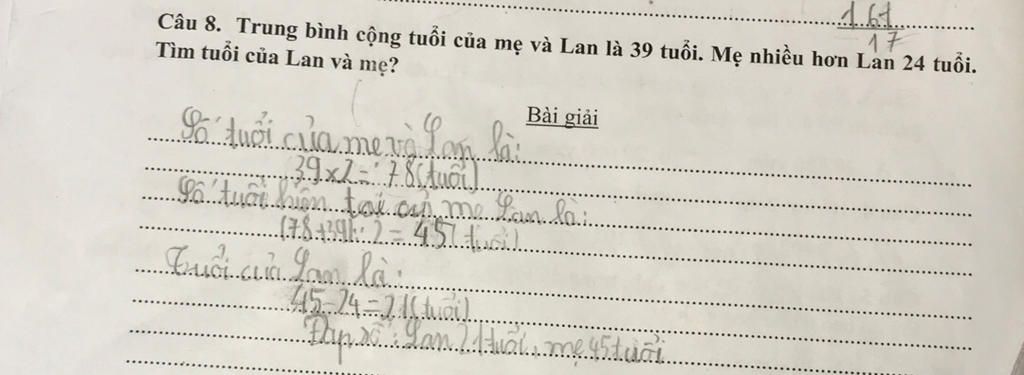 161
17
Câu 8. Trung bình cộng tuổi của mẹ và Lan là 39 tuổi. Mẹ nhiều hơn Lan 24 tuổi.
Tìm tuổi của Lan và mẹ?
Bài giải
Số tuổi của mẹ và Lan là:
39 x 2 = 78 (tuổi)
Số tuổi hiện tại củ mẹ Lan là:
(78 + 39) : 2 = 45 (tuổi)
Tuổi của Lan là:
45 - 24 = 21 (tuổi)
Đáp số: Lan 21 tuổi, mẹ 45 tuổi